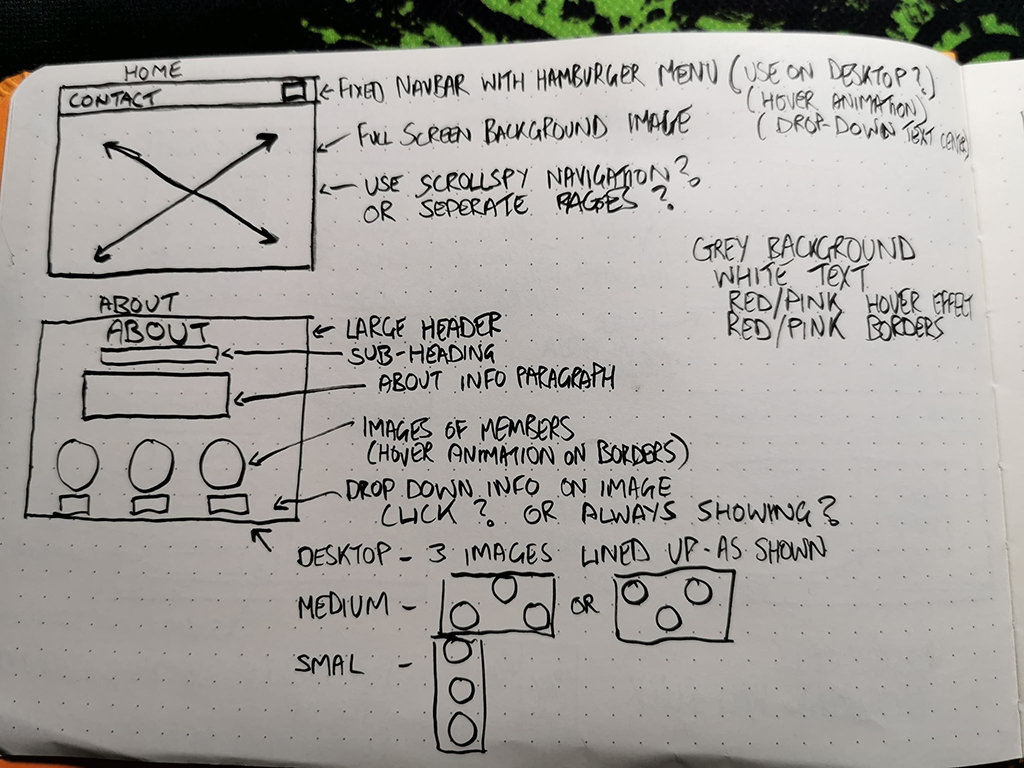 HOME
CONTACT
FIXED NAVBAR WITH HAMBURGER MENU (USE ON DESKTOP?)
(HOVER ANIMATION)
(DROP-DOWN TEXT CENTER)
FULL SCREEN BACKGROUND IMAGE
USE SCROLLSPY NAVIGATION?
OR SEPERATE PAGES?
GREY BACKGROUND
WHITE TEXT
RED/PINK HOVER EFFECT
RED/PINK BORDERS
ABOUT
ABOUT
LARGE HEADER
SUB-HEADING
ABOUT INFO PARAGRAPH
IMAGES OF MEMBERS
(HOVER ANIMATION ON BORDERS)
DROP DOWN INFO ON IMAGE
CLICK? OR ALWAYS SHOWING?
DESKTOP - 3 IMAGES LINED UP - AS SHOWN
MEDIUM - OR
SMAL -